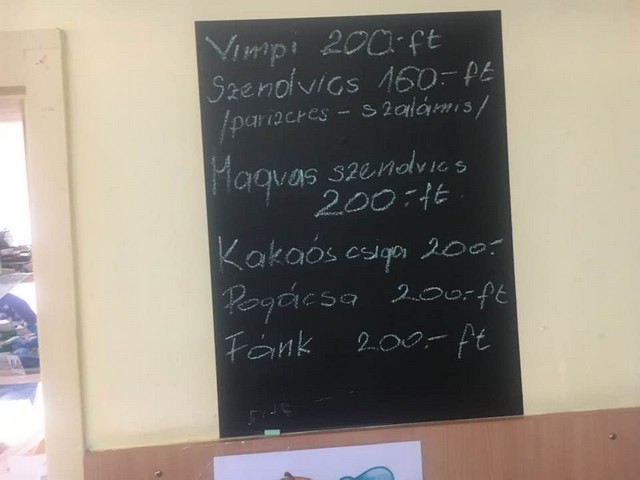 Vimpi 200.-ft
Szendvics 160.-ft
/parizeres - szalámis/
Magvas szendvics
200.-ft
Kakaós csiga 200.-
Pogácsa 200.-ft
Fánk 200.- ft